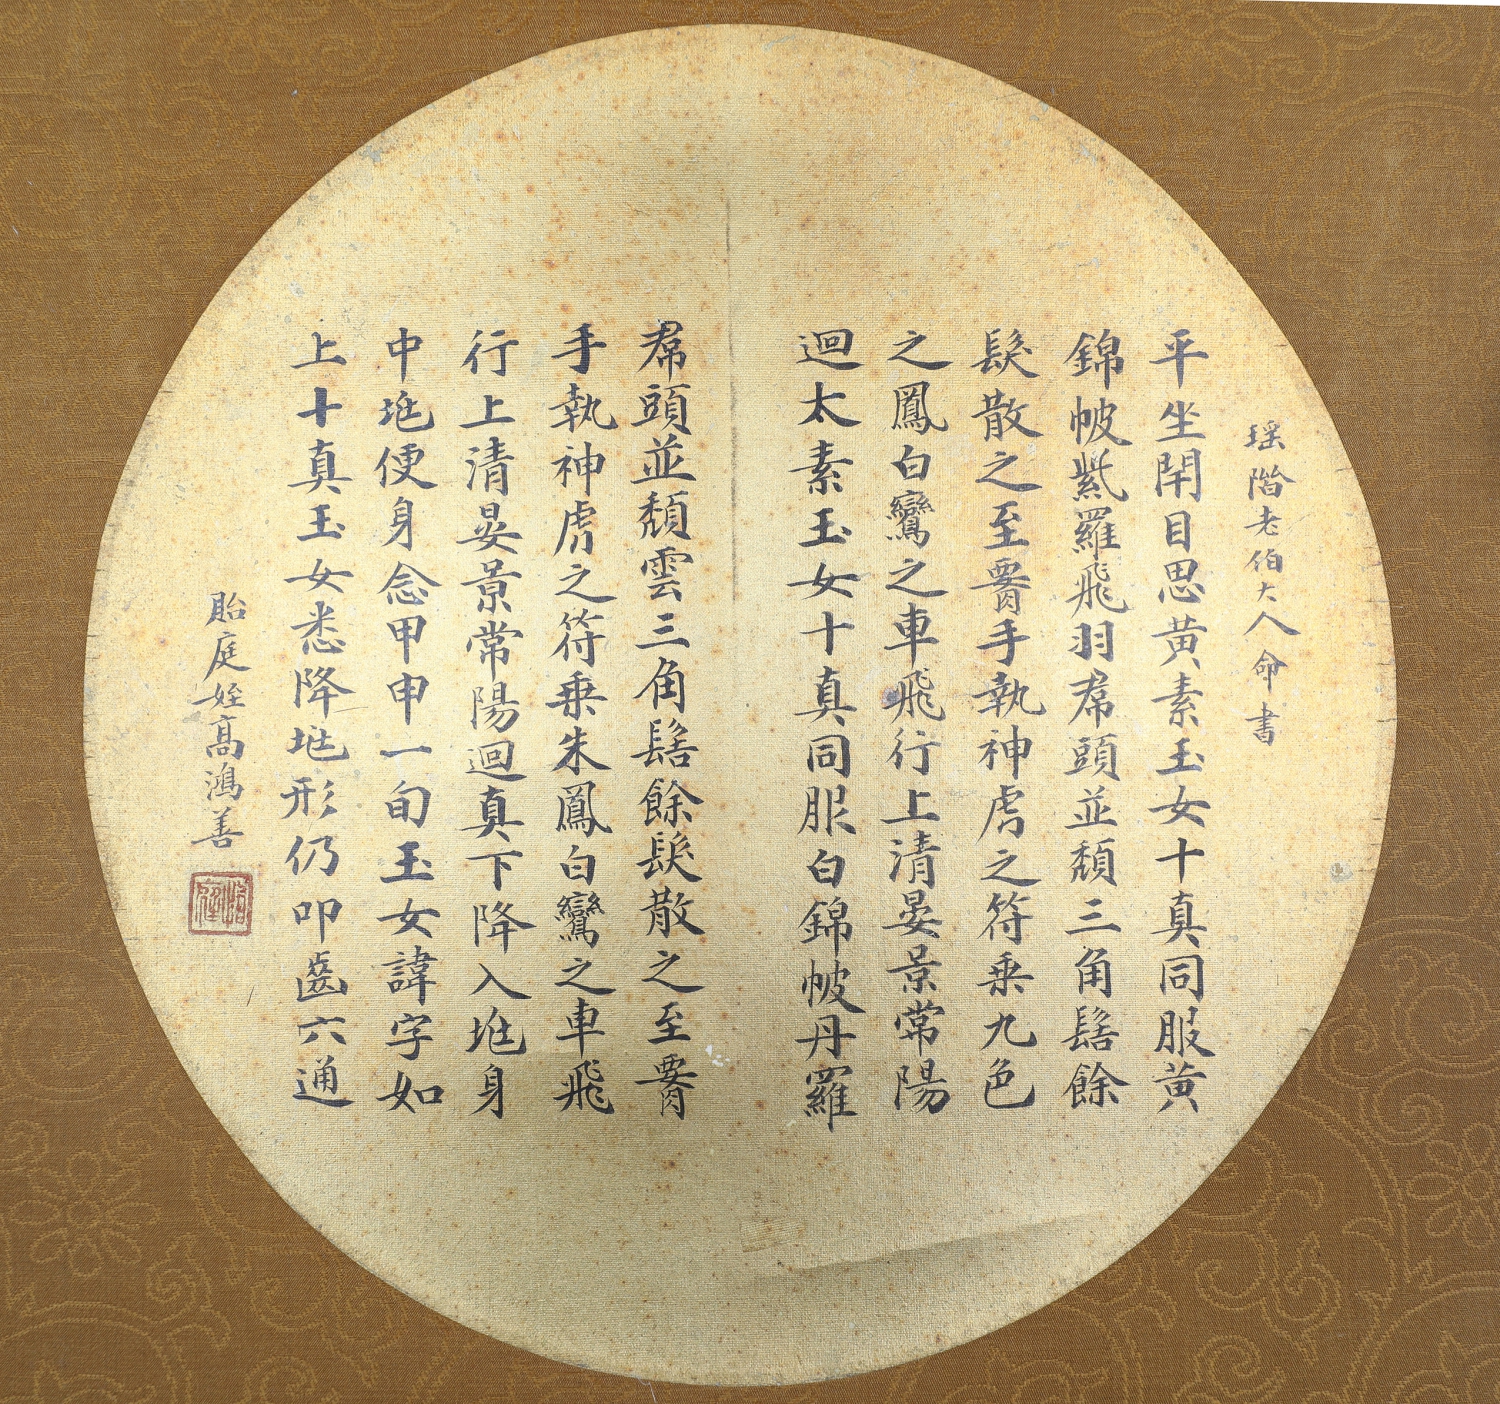 瑶階老伯大人命書
平坐閇目思黃素玉女十真同服黃
錦帔紫羅飛羽帬頭並頹三角髻餘
髮散之至腰手執神虎之符乗九色
之鳳白鸞之車飛行上清晏景常陽
迴太素玉女十真同服白錦帔丹羅
帬頭並頹雲三角髻餘髮散之至腰
手執神虎之符乗朱鳳白鸞之車飛
行上清晏景常陽迴真下降入兆身
中兆便身念甲申一旬玉女諱字如
上十真玉女悉降兆形仍叩齒六通
貽庭姪高鴻善